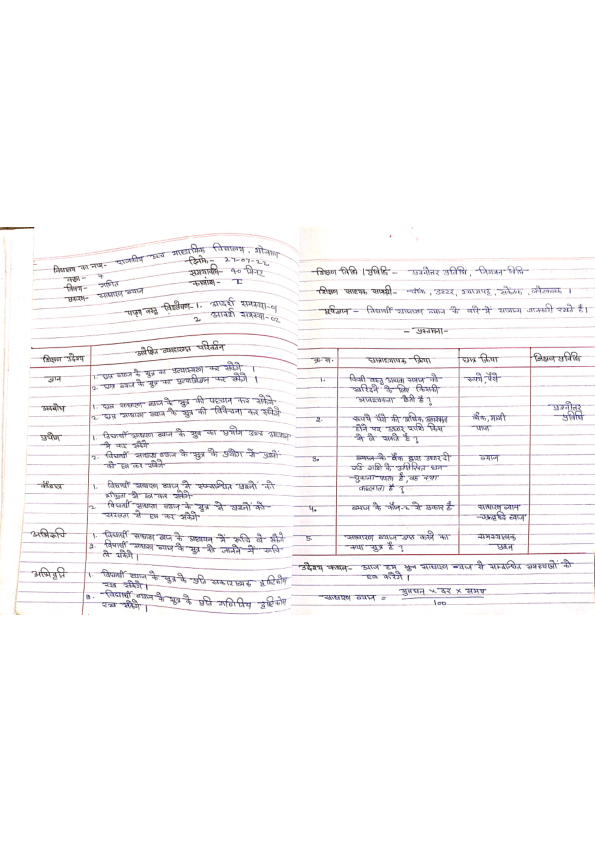 विद्यालय का नाम- राजकीय उच्च माध्यमिक विद्यालय,
कक्षा- 7 दिनांक- 27-07-22
विषय- गणित समयावधि- 40 मिनट
प्रकरण- साधारण ब्याज कालांश- I
पाठ्य वस्तु विश्लेषण- 1. आदर्श समस्या-01
2 आदर्श समस्या-02
शिक्षण उद्देश्य अपेक्षित व्यवहारगत परिवर्तन
ज्ञान 1. छात्र ब्याज के सूत्र का प्रत्यास्मरण कर सकेंगे ।
2. छात्र ब्याज के सूत्र का प्रत्यभिज्ञान कर सकेंगे ।
अवबोध 1. छात्र साधारण ब्याज के सूत्र की पहचान कर सकेंगे
2. छात्र साधारण ब्याज के सूत्र की विवेचना कर सकेंगे
प्रयोग 1. विद्यार्थी साधारण ब्याज के सूत्र का प्रयोग
में कर सकेंगे
2. विद्यार्थी साधारण ब्याज के सूत्र के प्रयोग से प्रश्नों
को हल कर सकेंगे
कौशल 1. विद्यार्थी साधारण ब्याज से सम्बन्धित प्रश्नों को
शीघ्रता से हल कर सकेंगे
2 विद्यार्थी साधारण ब्याज के सूत्र से प्रश्नों को
सरलता से हल कर सकेंगे
अभिरूचि 1. विद्यार्थी साधारण ब्याज के अध्ययन में रूचि ले सकेंगे
2. विद्यार्थी साधारण ब्याज के सूत्र को जानने में रूचि
ले सकेंगे ।
अभिवृति 1. विद्यार्थी ब्याज के सूत्र के प्रति सकारात्मक दृष्टिकोण
रख सकेंगे ।
2. विद्यार्थी ब्याज के सूत्र के प्रति गणितीय दृष्टिकोण
रख सकेंगे ।
शिक्षण विधि / प्रविधि - प्रश्नोत्तर प्रविधि, निगमन विधि
शिक्षण सहायक सामग्री - चॉक, डस्टर, श्यामपट्ट, संकेतक, ।
पूर्वज्ञान - विद्यार्थी साधारण ब्याज के बारे में सामान्य जानकारी रखते हैं।
- प्रस्तावना -
क्र.स. छात्राध्यापक क्रिया छात्र क्रिया शिक्षण प्रविधि
1. किसी वस्तु अथवा समान को रूपये, पैसे
खरिदने के लिए किसकी
आवश्यकता होती है ?
2. रूपये पैसे की अधिक आवश्यकता बैंक,
होने पर उधार राशि किस
से ले सकते है ?
प्रश्नोत्तर
प्रविधि
3. ब्याज के बैंक द्वारा उधार दी ब्याज
गई राशि के अतिरिक्त धन
चुकाया जाता है, वह क्या
कहलाता है ?
4. ब्याज के कौन-2 से प्रकार है साधारण ब्याज
चक्रवृद्धि ब्याज
5. साधारण ब्याज ज्ञात करने का समस्यात्मक
क्या सूत्र है ? प्रश्न
उद्देश्य कथन- आज हम सूत्र साधारण ब्याज से सम्बन्धित समस्याओं को
हल करेंगे ।
साधारण ब्याज = मूलधन × दर × समय
100